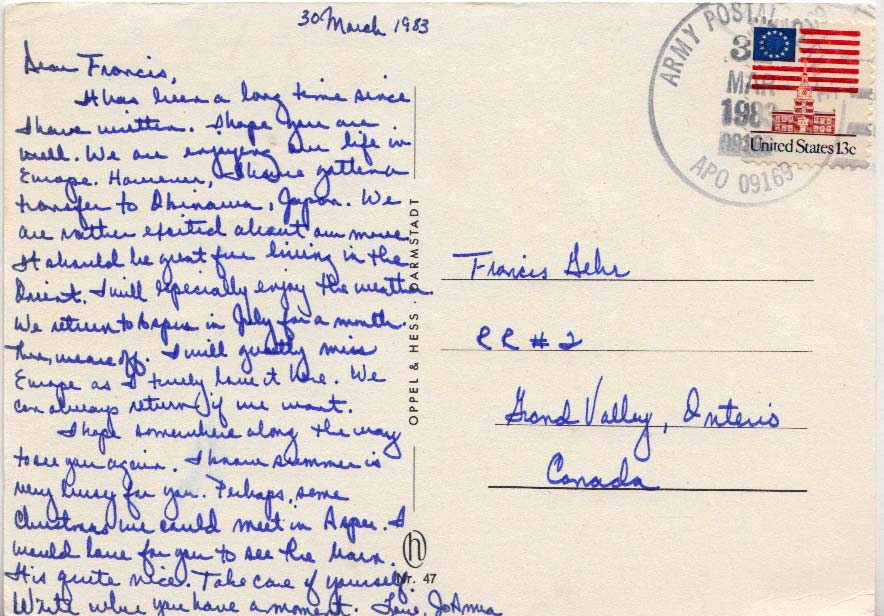 30 March 1983
Dear Francis,
It has been a long time since
I have written. I hope you are
well. We are enjoying our life in
Europe. However, I have gotten a
transfer to Okinawa, Japan. We
are rather excited about our move.
It should be great fun living in the
Orient. I will especially enjoy the weather.
We return to Aspen in July for a month.
Then, we are off. I will greatly miss
Europe as I truely love it here. We
can always return if we want.
I hope somewhere along the way
to see you again. I know summer is
very busy for you. Perhaps, some
Christmas we could meet in Aspen. I
would love for you to see the barn.
It is quite nice. Take care of yourself.
Write when you have a moment. Love, JoAnna
OPPEL & HESS · DARMSTADT
h
Nr. 47
ARMY POSTAL
3
MAR
1983
APO 09169
United States 13c
Francis Gehr
RR #2
Grand Valley, Onterio
Canada